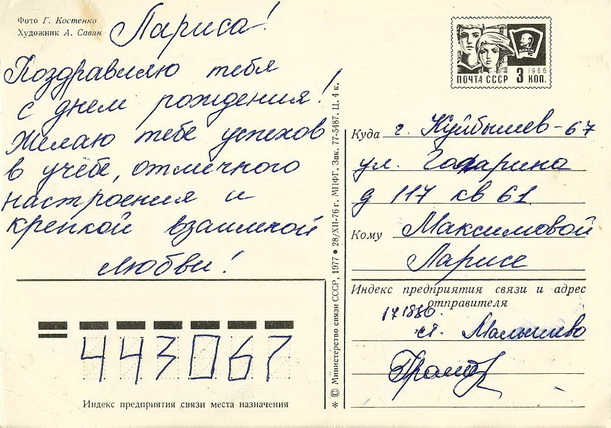 Фото Г. Костенко
Художник А. Саван
Лариса!
Поздравляю тебя
с днем рождения!
Желаю тебе успехов
в учёбе, отличного
настроения и
крепкой взаимной
любви!
443067
Индекс предприятия связи места назначения
* © Министерство связи СССР, 1977 • 28/XII-76 г. МПФГ, Зак. 77-5487. Ц. 4 к.
1966
ПОЧТА СССР 3 КОП.
Куда г. Куйбышев-67
ул. Гагарина
д 117 кв 61
Кому Максимовой
Ларисе
Индекс предприятия связи и адрес
отправителя
ст. Малышево